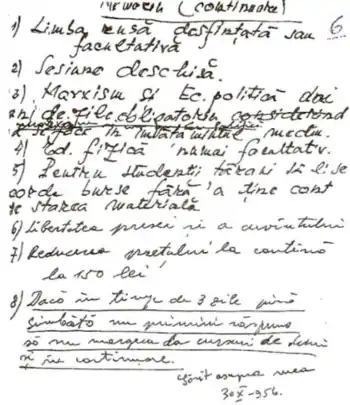 (continuare) 6
1) Limba rusă desfințată sau
facultativă
2) Sesiune deschisă.
3) Marxism și Ec. politică doi
ani de zile, obligatoriu considerînd
în mediu.
4) Ed. fizică numai facultativ.
5) Pentru studenții țărani să li se
acorde burse fără a ține cont
de starea materială
6) Libertatea presei și a cuvîntului
7) Reducerea prețului la cantină
la 150 lei
8) Dacă în timp de 3 zile pînă
sîmbătă nu primim răspuns
să nu mergem la cursuri de luni
și în continuare.
găsit asupra mea
30 X-956.